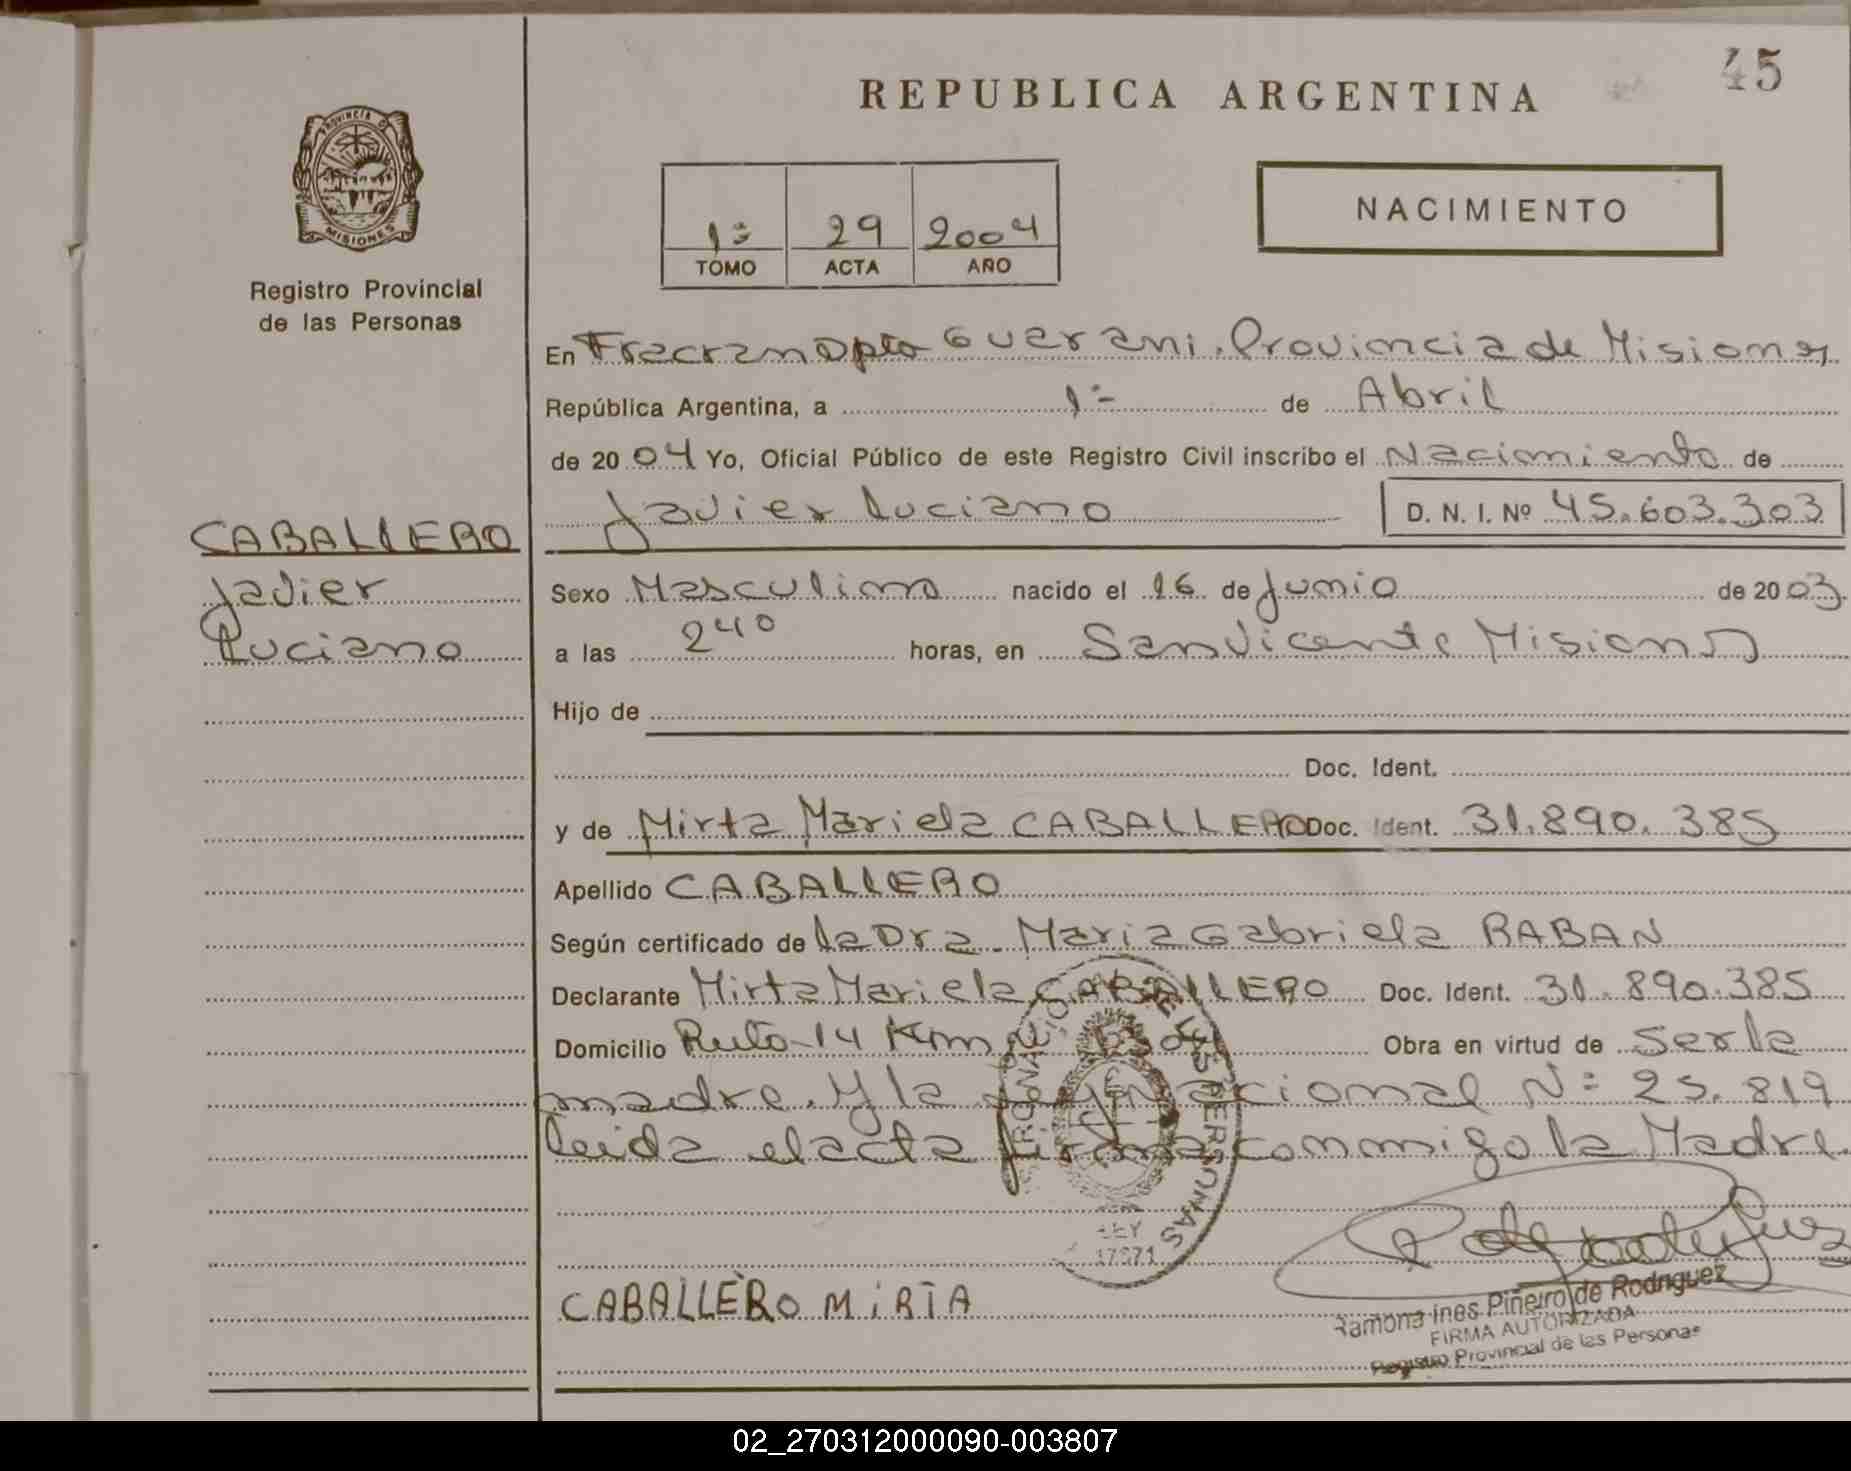 45
REPUBLICA ARGENTINA
PROVINCIA DE
MISIONES
Registro Provincial
de las Personas
1º 29 2004
TOMO ACTA AÑO
NACIMIENTO
En Fracran Dpto Guarani. Provincia de Misiones
República Argentina, a 1º de Abril
de 2004 Yo, Oficial Público de este Registro Civil inscribo el Nacimiento de
Javier Luciano D. N. I. Nº 45.603.303
CABALLERO
Javier
Luciano
Sexo Masculino nacido el 16 de Junio de 2003.
a las 2 40 horas, en San Vicente Misiones
Hijo de
Doc. Ident.
y de Mirta Mariela CABALLERO Doc. Ident. 31.890.385
Apellido CABALLERO
Según certificado de la Dra. Maria Gabriela RABAN
Declarante Mirta Mariela CABALLERO Doc. Ident. 31.890.385
Domicilio Ruta 14 Km Obra en virtud de Ser la
madre. Y la Ley Nacional Nº 25.819
leida el acta firma conmigo la Madre.
LEY
17671
CABALLERO MIRTA
Ramona Ines Piñeiro de Rodriguez
FIRMA AUTORIZADA
Registro Provincial de las Personas
02_270312000090-003807